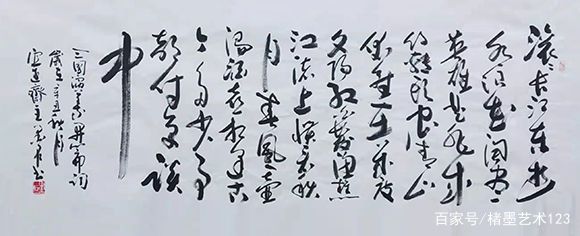 滚滚长江东逝
水浪花淘尽
英雄是非成
败转头空青山
依旧在几度
夕阳红白发渔樵
江渚上惯看秋
月春风一壶
浊酒喜相逢古
今多少事
都付笑谈
中
三国演义开篇词
岁在辛丑秋月
斋主
百家号/楮墨艺术123